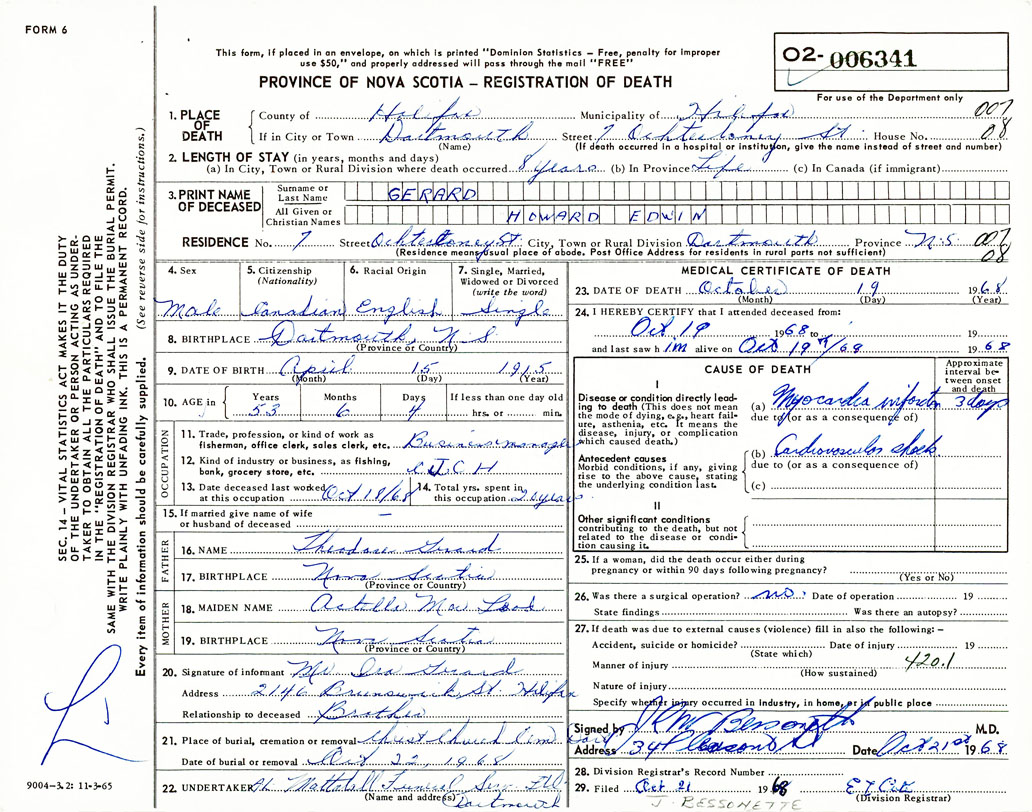 FORM 6
This form, if placed in an envelope, on which is printed "Dominion Statistics – Free, penalty for improper
use $50," and properly addressed will pass through the mail "FREE"
PROVINCE OF NOVA SCOTIA – REGISTRATION OF DEATH
O2- 006341
For use of the Department only
1. PLACE OF DEATH
County of Halifax Municipality of Halifax 007
If in City or Town Dartmouth Street 7 Ochterloney St. House No. 08
(Name) (If death occurred in a hospital or institution, give the name instead of street and number)
2. LENGTH OF STAY (in years, months and days)
(a) In City, Town or Rural Division where death occurred 8 years (b) In Province Life (c) In Canada (if immigrant)
3. PRINT NAME OF DECEASED
Surname or Last Name GERARD
All Given or Christian Names HOWARD EDWIN
RESIDENCE No. 7 Street Ochterloney St. City, Town or Rural Division Dartmouth Province N.S. 007
(Residence means usual place of abode. Post Office Address for residents in rural parts not sufficient) 08
4. Sex
Male
5. Citizenship (Nationality)
Canadian
6. Racial Origin
English
7. Single, Married, Widowed or Divorced (write the word)
Single
8. BIRTHPLACE Dartmouth, N S
(Province or Country)
9. DATE OF BIRTH April 15 1915
(Month) (Day) (Year)
10. AGE in Years Months Days If less than one day old
53 6 4 hrs. or min.
OCCUPATION
11. Trade, profession, or kind of work as fisherman, office clerk, sales clerk, etc. Business manager
12. Kind of industry or business, as fishing, bank, grocery store, etc. C J C H
13. Date deceased last worked at this occupation Oct 18/68
14. Total yrs. spent in this occupation 20 years
15. If married give name of wife or husband of deceased –
FATHER
16. NAME Theodore Gerard
17. BIRTHPLACE Nova Scotia
(Province or Country)
MOTHER
18. MAIDEN NAME
19. BIRTHPLACE Nova Scotia
(Province or Country)
20. Signature of informant Mr. Ira Gerard
Address 2146 Brunswick St. Halifax
Relationship to deceased Brother
21. Place of burial, cremation or removal Christ Church Cem Dart
Date of burial or removal Oct 22, 1968
22. UNDERTAKER Mattatall Funeral Serv. Ltd
(Name and address) Dartmouth
MEDICAL CERTIFICATE OF DEATH
23. DATE OF DEATH October 19 1968
(Month) (Day) (Year)
24. I HEREBY CERTIFY that I attended deceased from:
Oct. 19 1968 to 19
and last saw him alive on Oct 19th/68 1968
CAUSE OF DEATH
Approximate interval between onset and death
I
Disease or condition directly leading to death (This does not mean the mode of dying, e.g., heart failure, asthenia, etc. It means the disease, injury, or complication which caused death.)
(a) Myocardia infarction 3 days
due to (or as a consequence of)
Antecedent causes
Morbid conditions, if any, giving rise to the above cause, stating the underlying condition last.
(b) Cardiovascular shock
due to (or as a consequence of)
(c)
II
Other significant conditions
contributing to the death, but not related to the disease or condition causing it.
25. If a woman, did the death occur either during
pregnancy or within 90 days following pregnancy?
(Yes or No)
26. Was there a surgical operation? no. Date of operation 19
State findings Was there an autopsy?
27. If death was due to external causes (violence) fill in also the following: –
Accident, suicide or homicide? Date of injury 19
(State which)
Manner of injury 420.1
(How sustained)
Nature of injury
Specify whether injury occurred in Industry, in home, or in public place
Signed by Bessonette M.D.
Address 34 Pleasant St Date Oct 21st 1968
28. Division Registrar's Record Number
29. Filed Oct 21 1968
(Division Registrar)
J. BESSONETTE
SEC. 14 – VITAL STATISTICS ACT MAKES IT THE DUTY
OF THE UNDERTAKER OR PERSON ACTING AS UNDER-
TAKER TO OBTAIN ALL THE PARTICULARS REQUIRED
IN THE "REGISTRATION OF DEATH" AND TO FILE THE
SAME WITH THE DIVISION REGISTRAR WHO SHALL ISSUE THE BURIAL PERMIT.
WRITE PLAINLY WITH UNFADING INK. THIS IS A PERMANENT RECORD.
Every item of information should be carefully supplied. (See reverse side for instructions.)
9004-3.2: 11-3-65